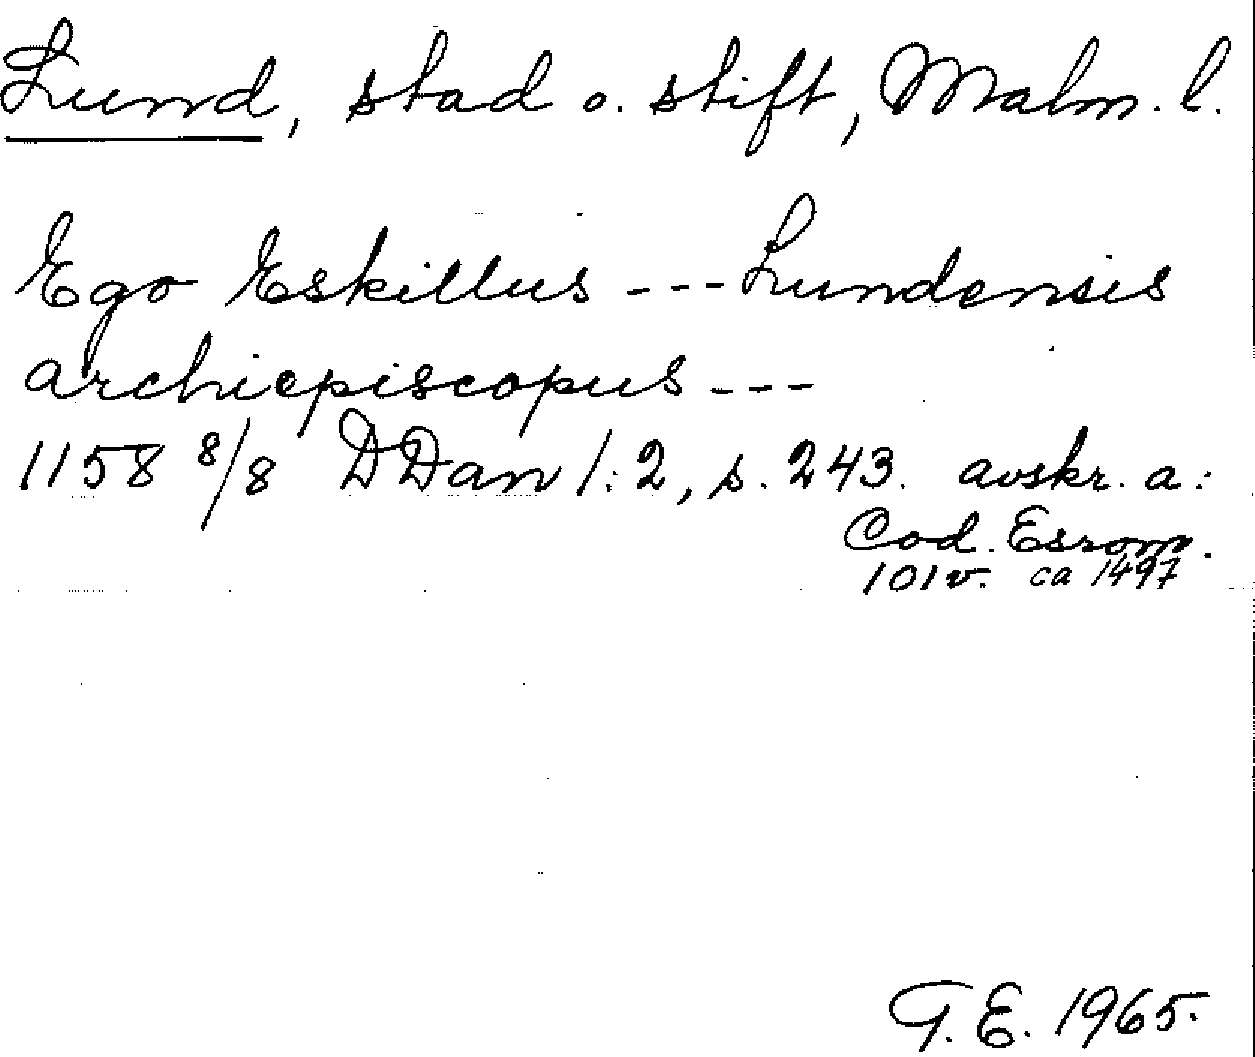 Lund, stad o. stift, Malm. l.
Ego Eskillus --- Lundensis
archiepiscopus ---
1158 8/8 DDan 1:2, s. 243. avskr. a:
Cod. Esrom.
101v. ca 1497
G.E. 1965.